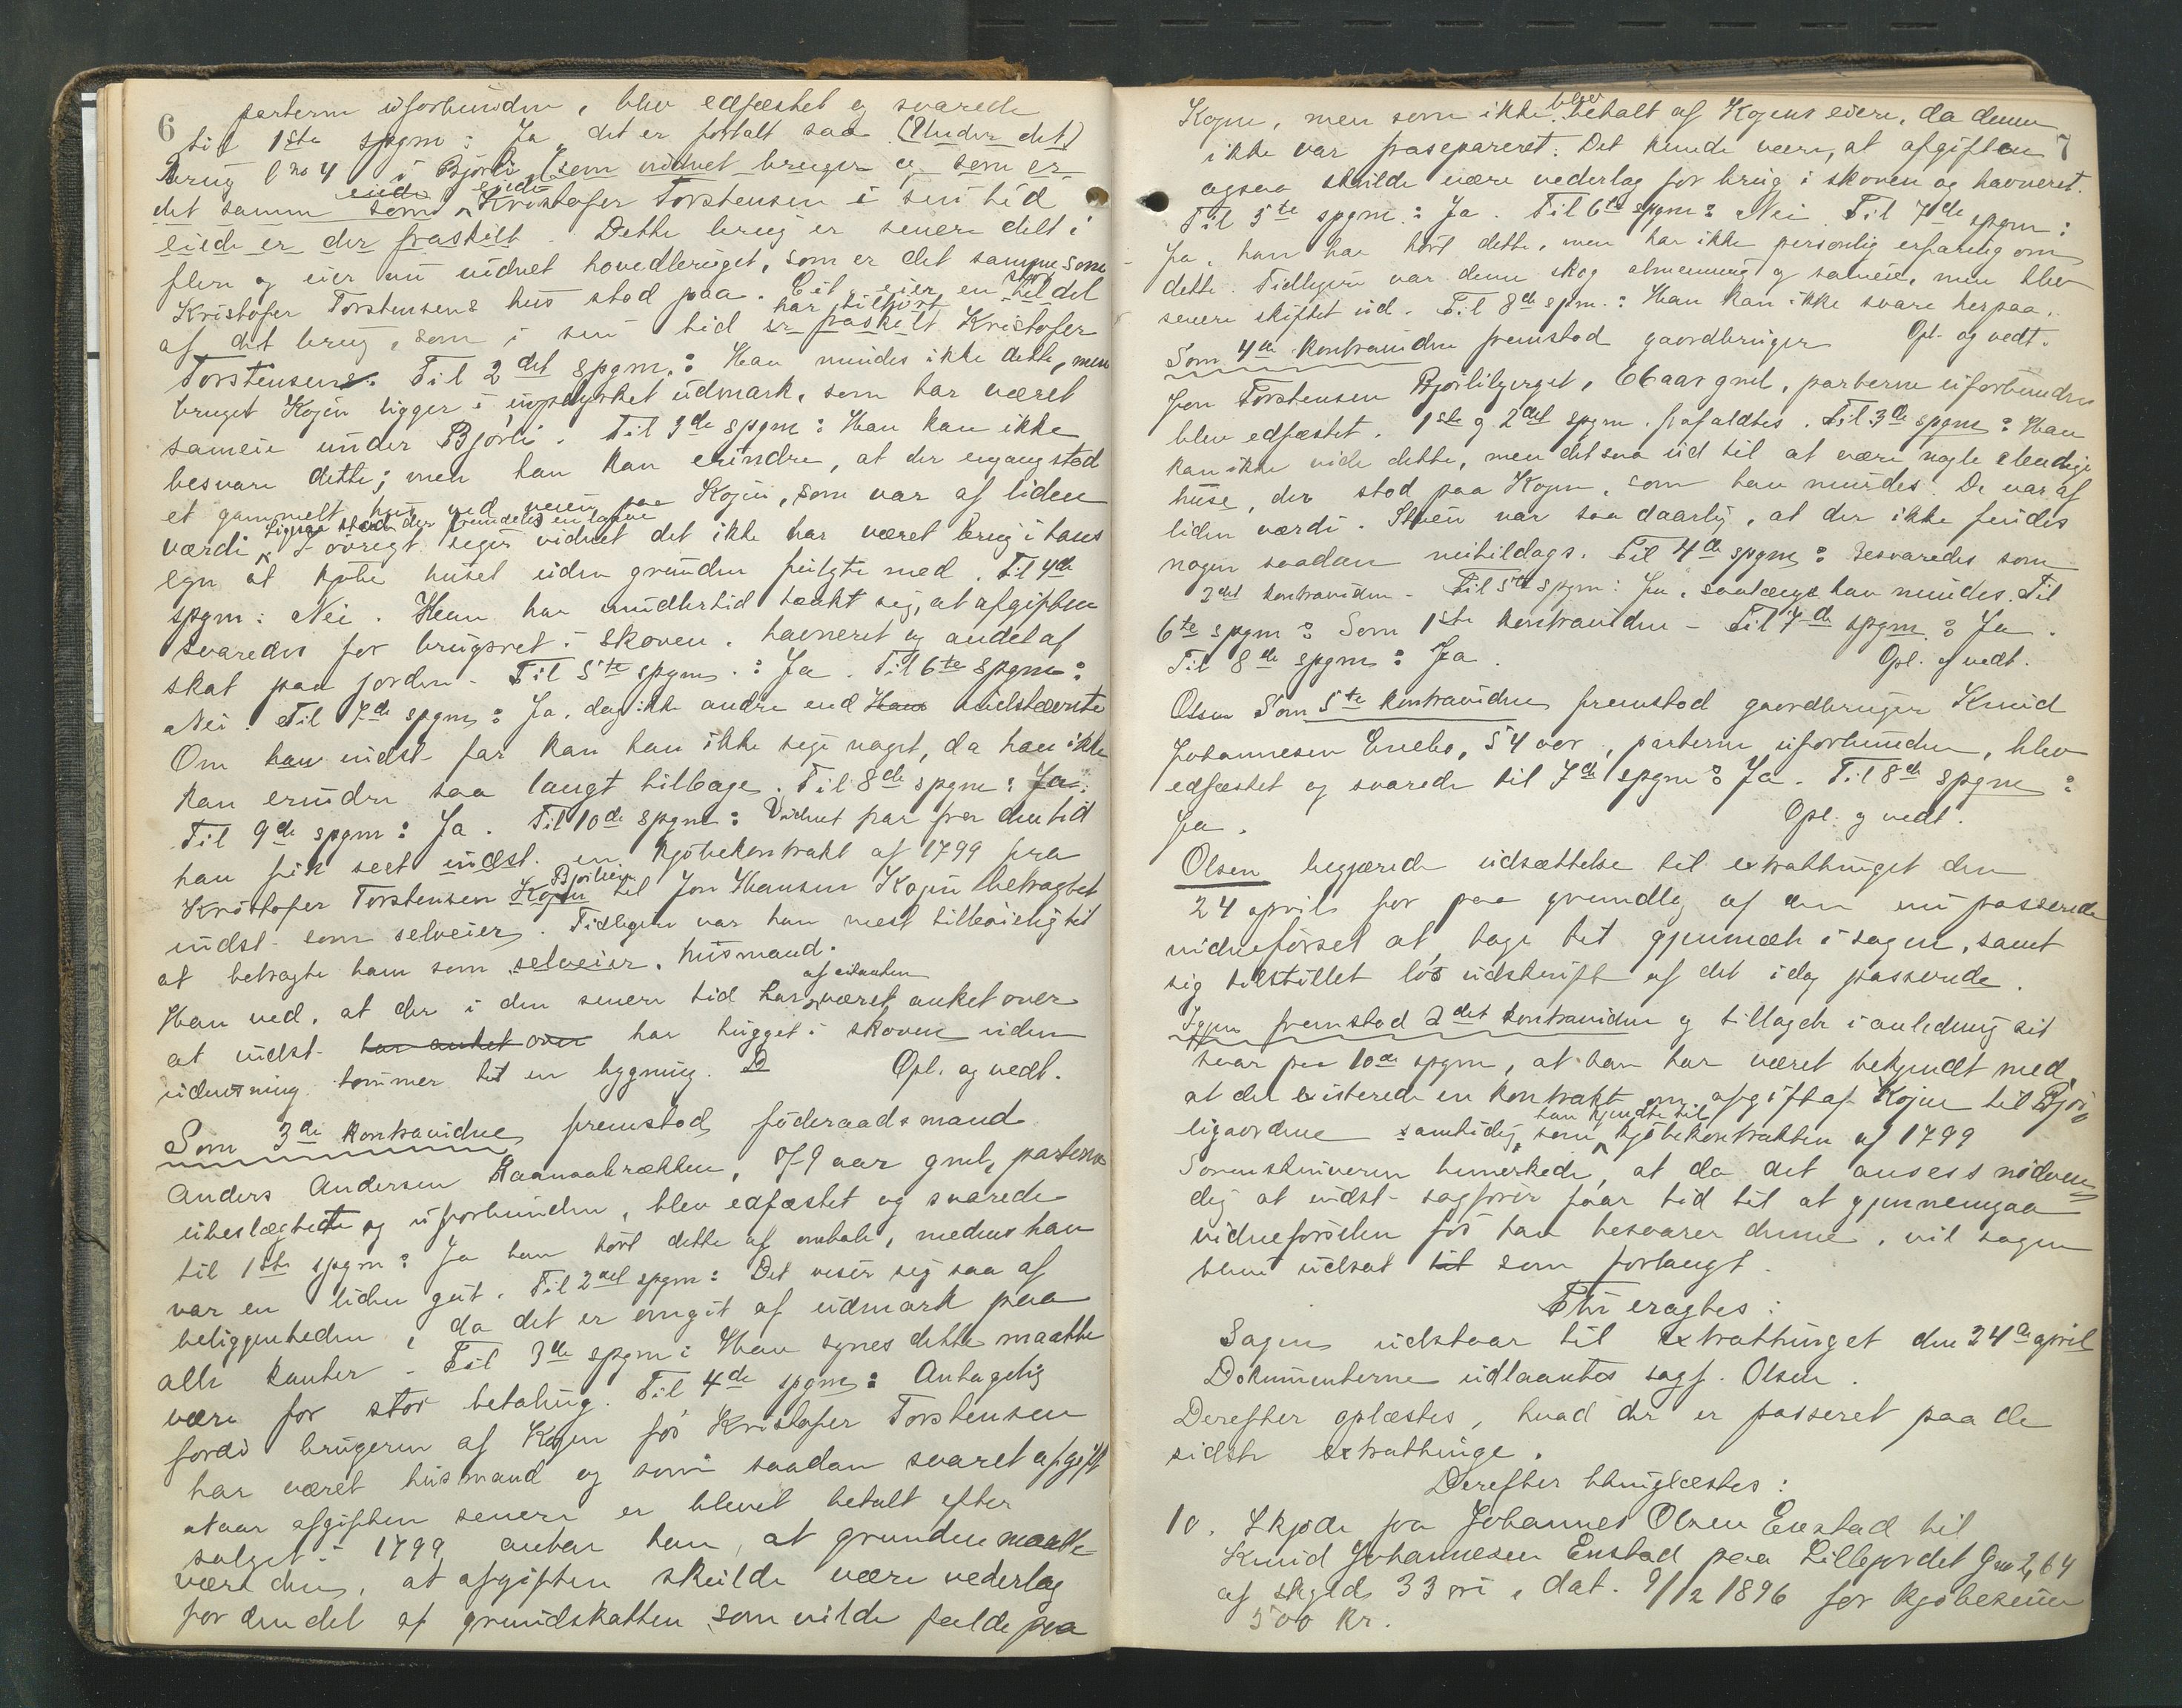 6
parterne uforbunden, blev edfæstet og svarede
til 1ste spgm: Ja, det er fortalt saa. (Under det)
Brug l no 4 i Bjorli (som vidnet bruger og som er
det samme som eiede Kristofer Torstensen i sin tid
eiede er der fraskilt. Dette brug er senere delt i
flere og eier nu vidnet hovedbruget, som er det samme som
Kristofer Torstensens hus stod paa. Cit. eier en stor del
af det brug, som i sin tid har tilhørt Kristofer
Torstensen. Til 2det spgm.: Han mindes ikke dette, men
bruget Kojen ligger i uopdyrket udmark, som har været
sameie under Bjorli. Til 3de spgm: Han kan ikke
besvare dette; men han kan erindre, at der engang stod
et gammelt hus ved veien paa Kojen, som var af liden
værdi. Ligesaa stod der fremdeles en
I øvrigt siger vidnet det ikke har været brug i hans
egn at kjøbe huset uden grunden fulgte med. Til 4de
spgm: Nei. Han har imidlertid tænkt sig, at afgiften
svaredes for brugsret i skoven, havneret og andel af
skat paa jorden. Til 5te spgm.: Ja. Til 6te spgm:
Nei. Til 7de spgm: Ja, dog ikke andre end Hans indstævnte
Om han indst. far kan han ikke sige noget, da han ikke
kan erindre saa langt tilbage. Til 8de spgm: Ja.
Til 9de spgm: Ja. Til 10de spgm: Vidnet har fra den tid
han fik seet indst. en kjøbekontrakt af 1799 fra
Kristofer Torstensen Kojen Bjorlien til Jon Hansen Kojen betragtet
indst. som selveier. Tidligere var han mest tilbøielig til
at betragte ham som selveier. husmand.
Han ved, at der i den senere tid har været af citanten anket over
at indst. har anket over har hugget i skoven uden
udvisning tømmer til en bygning. D Opl. og vedt.
Som 3die kontravidne fremstod føderaadsmand
Anders Andersen Raanaabrækken, 79 aar gml, parterne
ubeslægtede og uforbunden, blev edfæstet og svarede
til 1ste spgm: Ja han hørt dette af omtale, medens han
var en liden gut. Til 2det spgm: Det viser sig saa af
beliggenheden, da det er omgit af udmark paa
alle kanter. Til 3de spgm: Han synes dette maatte
være for stor betaling. Til 4de spgm: Antagelig
fordi brugeren af Kojen før Kristofer Torstensen
har været husmand og som saadan svaret afgift
Naar afgiften senere er blevet betalt efter
salget i 1799 antar han, at grunden maatte
være den, at afgiften skulde være vederlag
for den del af grundskatten som vilde falde paa
7
Kojen, men som ikke blev betalt af Kojens eiere, da denne
ikke var fraseperaret. Det kunde være, at afgiften
ogsaa skulde være vederlag for brug i skoven og havneret.
Til 5te spgm: Ja. Til 6te spgm: Nei. Til 7de spgm:
Ja, han har hørt dette, men har ikke personlig erfaring om
dette. Tidligere var denne skog almenning og sameie, men blev
senere skiftet ud. Til 8de spm.: Han kan ikke svare herpaa.
Opl. og vedt.
Som 4de kontravidne fremstod gaardbruger
Jon Torstensen Bjorlibjerget, 66 aar gml, parterne uforbunden
blev edfæstet. 1ste og 2det spgm. frafaldtes. Til 3de spgm: Han
kan ikke vide dette, men det saa ud til at være nogle elendige
huse, der stod paa Kojen, som han mindes. De var af
liden værdi. Stuen var saa daarlig, at der ikke findes
nogen saadan nutildags. Til 4de spgm: Besvaredes som
2det kontravidne. Til 5te spgm: Ja, saalænge han mindes. Til
6te spgm: Som 1ste kontravidne - Til 7de spgm: Ja.
Til 8de spgm: Ja. Opl. og vedt.
Olsen Som 5te kontravidne fremstod gaardbruger Knud
Johannesen Enebo, 54 aar, parterne uforbunden, blev
edfæstet og svarede til 7de spgm: Ja. Til 8de spgm:
Ja. Opl. og vedt.
Olsen begjærede udsættelse til extrathinget den
24 april for paa grundlag af den nu passerede
vidneførsel at tage til gjenmæle i sagen, samt
sig tilstillet løs udskrift af det idag passerede.
Igjen fremstod 2det kontravidne og tillagde i anledning sit
svar paa 10de spgm, at han har været bekjendt med,
at det existerede en kontrakt om afgift af Kojen til Bjor-
ligaardene samtidig som han kjendte til kjøbekontrakten af 1799
Sorenskriveren bemerkede, at da det ansees nødven-
dig at indst. sagfører faar tid til at gjennemgaa
vidneførselen før han besvarer denne, vil sagen
blive udsat til som forlangt.
Thi eragtes:
Sagen udstaar til extrathinget den 24de april
Dokumenterne udlaantes sagf. Olsen.
Derefter oplæstes, hvad der er passeret paa de
sidste extrathinge.
Derefter thinglæstes:
10. Skjøde fra Johannes Olsen Enstad til
Knud Johannesen Enstad paa Lillejordet Gno 2, 64
af skyld 33 øre, dat. 9/12 1896 for kjøbesum
500 kr.